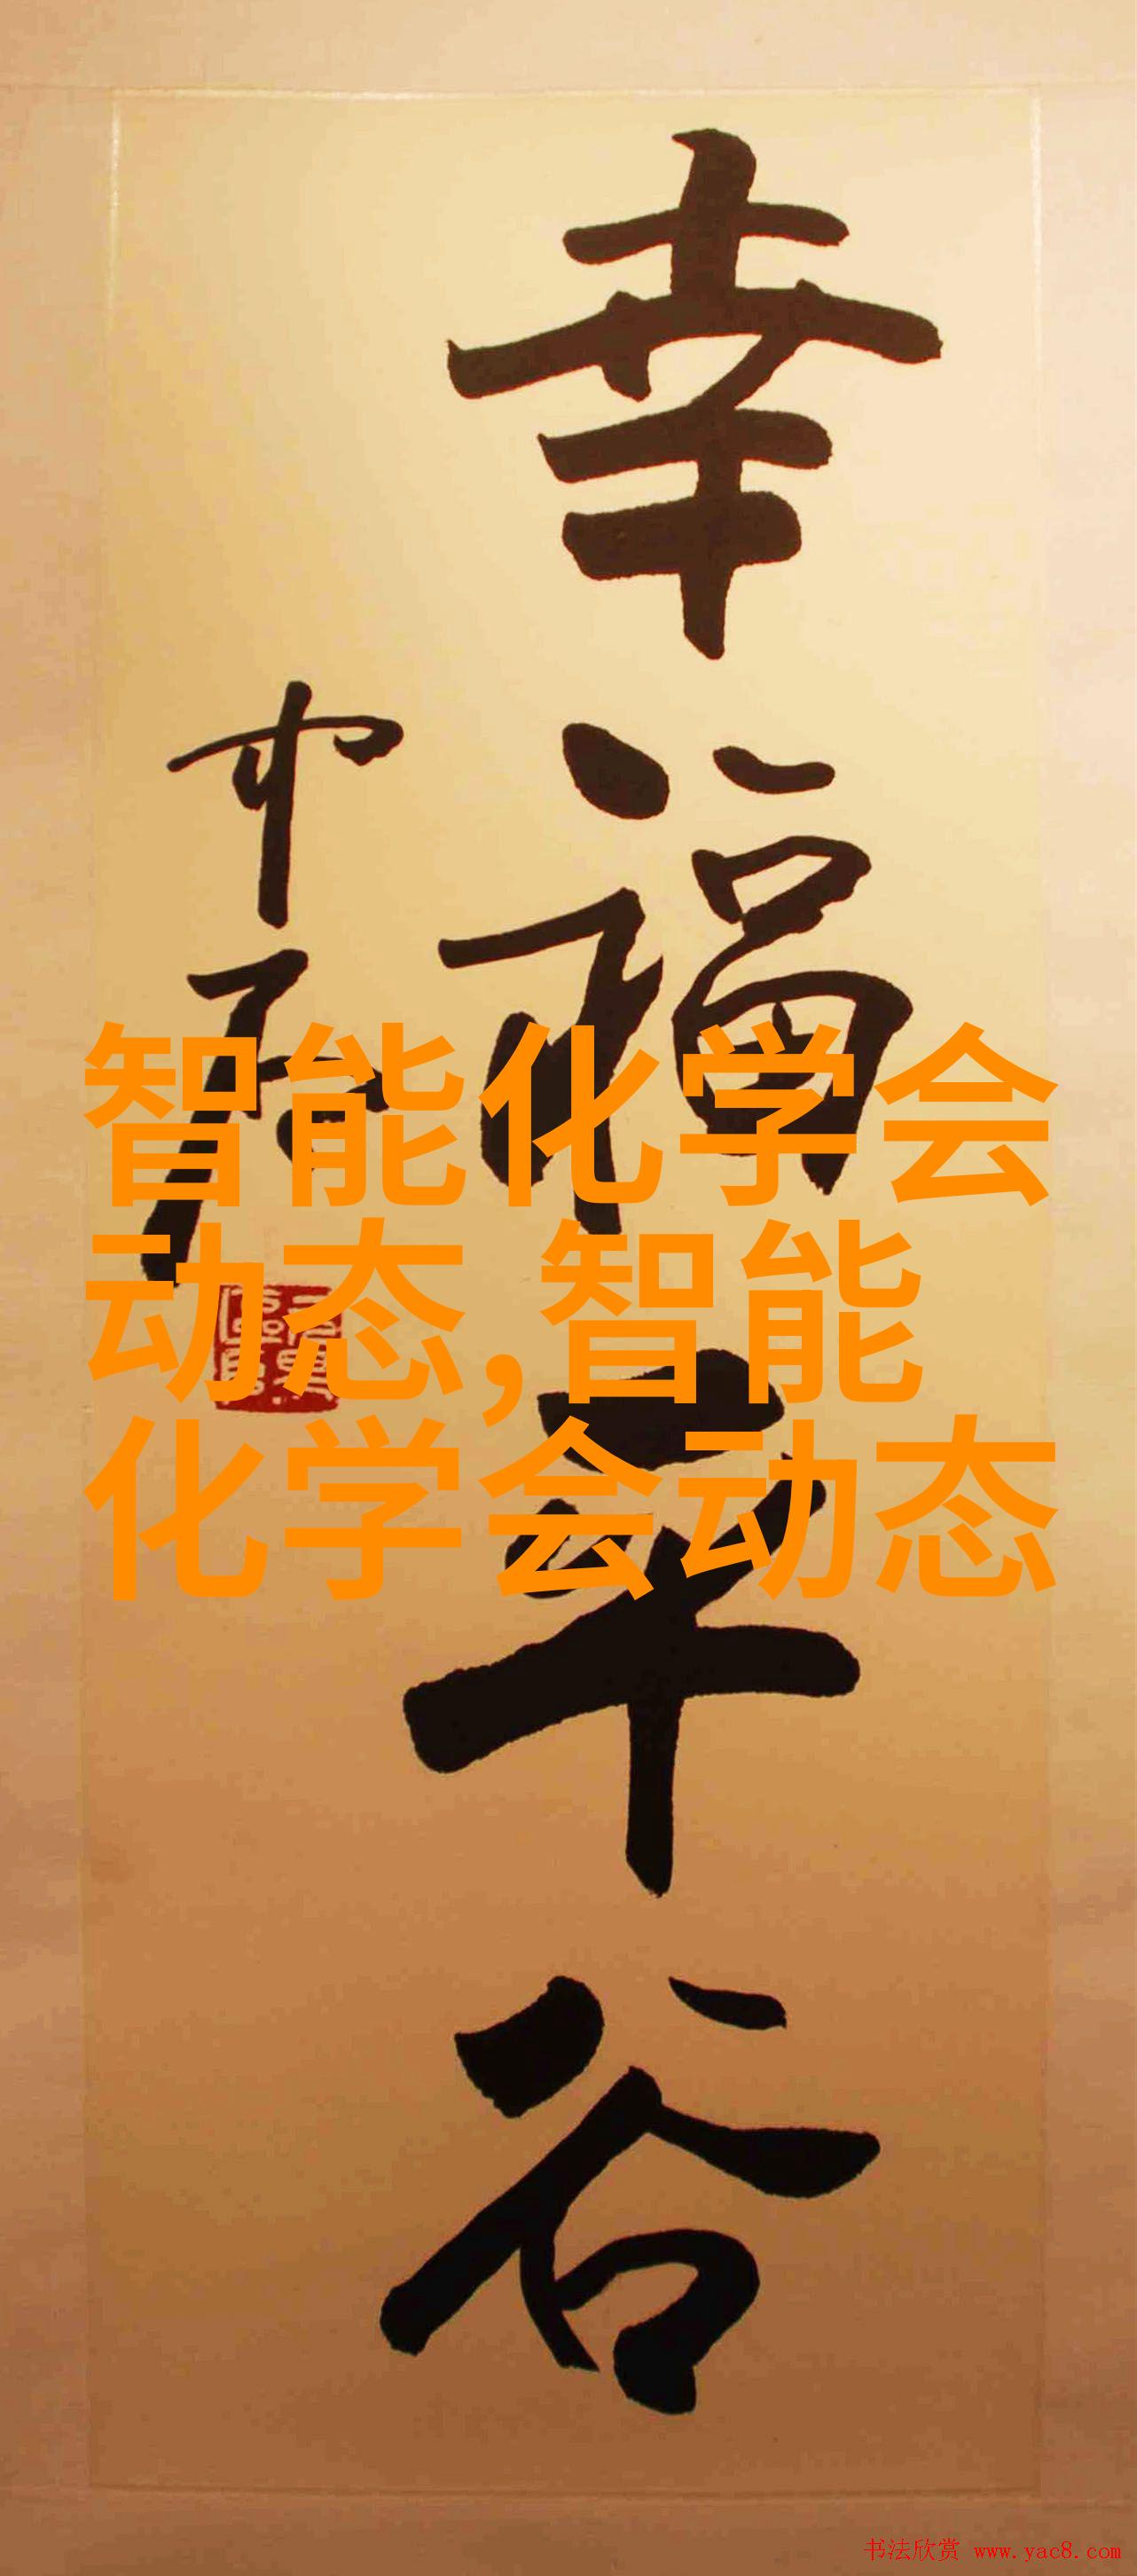 幸福平谷
中石
智能化学会
动态,智能
化学会动态
书法欣赏 www.yac8.com